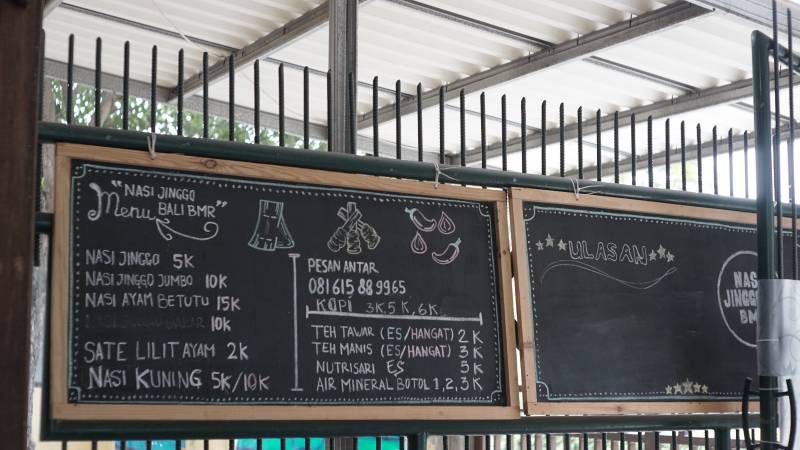 "NASI JINGGO
Menu BALI BMR"
NASI JINGGO 5K
NASI JINGGO JUMBO 10K
NASI AYAM BETUTU 15K
10K
SATE LILIT AYAM 2K
NASI KUNING 5K/10K
PESAN ANTAR
081615889965
KOPI 3K,5K,6K
TEH TAWAR (ES/HANGAT) 2K
TEH MANIS (ES/HANGAT) 3K
NUTRISARI ES 5K
AIR MINERAL BOTOL 1,2,3K
ULASAN
NASI
JINGGO
BM